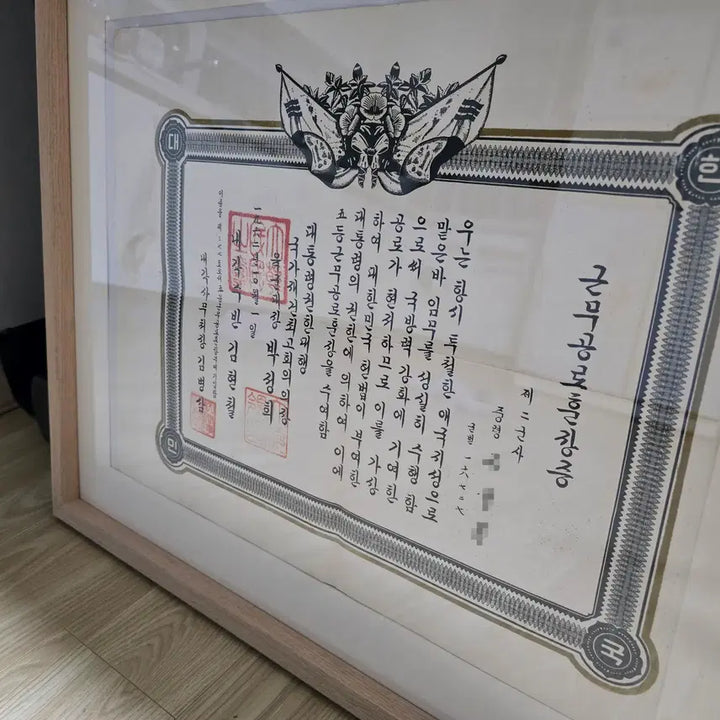 대 한 민 국
근무공로훈장증
제二군사
중령
군번
우는 항시 투철한 애국지성으로
맡은바 임무를 성실히 수행함
으로써 국방력 강화에 기여한
공로가 현저하므로 이를 가상
하여 대한민국 헌법이 부여한
대통령의 권한에 의하여 이에
등근무공로훈장을 수여함
대통령권한대행
국가재건최고회의의장
육군대장 박정희
一일
내각수반 김현철
내각사무처장 김병삼